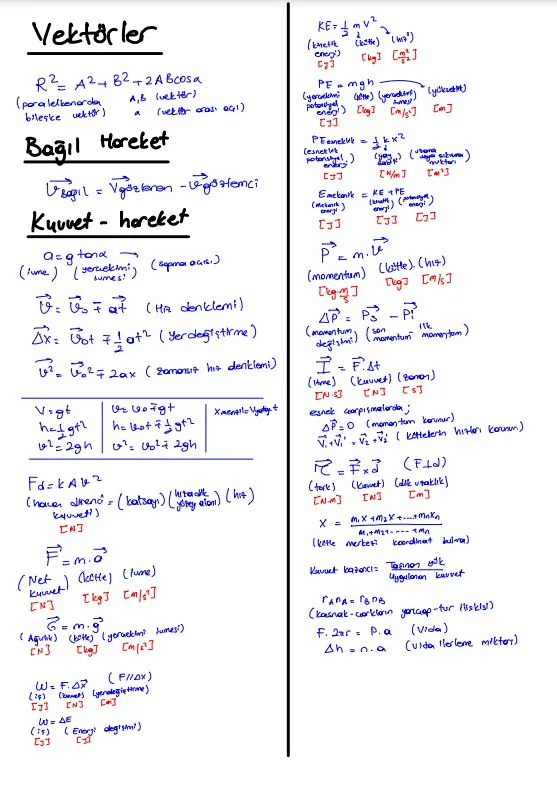 Vektörler
R² = A² + B² + 2ABcosa
(paralelkenarda A,B (vektör)
bileşke vektör) a (vektör arası açı)
Bağıl Hareket
V⃗bağıl = V⃗gözlenen - V⃗gözlemci
Kuvvet - hareket
a = g tana
(ivme) (yerçekimi ivmesi) (sapma açısı)
V⃗ = V⃗₀ ∓ a⃗t (Hız denklemi)
Δ⃗x = V⃗₀t ∓ 1/2 at² (Yerdeğiştirme)
V⃗² = V⃗₀² ∓ 2ax (zamansız hız denklemi)
V = gt
h = 1/2 gt²
V² = 2gh
V = V₀ ∓ gt
h = V₀t ∓ 1/2 gt²
V² = V₀² ∓ 2gh
Xmenzil = Vyatay.t
Fd = kAV²
(hava direnci kuvveti) = (katsayı) (hıza dik yüzey alanı) (hız)
[N]
F⃗ = m.a⃗
(Net kuvvet) (kütle) (ivme)
[N] [kg] [m/s²]
G⃗ = m.g⃗
(Ağırlık) (kütle) (yerçekimi ivmesi)
[N] [kg] [m/s²]
W = F.Δx⃗ (F//Δx)
(iş) (kuvvet) (yerdeğiştirme)
[J] [N] [m]
W = ΔE
(iş) (Enerji değişimi)
[J] [J]
KE = 1/2 mV²
(kinetik enerji) (kütle) (hız²)
[J] [kg] [m²/s²]
PE = mgh
(yerçekimi potansiyel enerji) (kütle) (yerçekimi ivmesi) (yükseklik)
[J] [kg] [m/s²] [m]
PEesneklik = 1/2 kx²
(esneklik potansiyel enerji) (yay sabiti) (uzama veya sıkışma miktarı)
[J] [N/m] [m²]
Emekanik = KE + PE
(mekanik enerji) (kinetik enerji) (potansiyel enerji)
[J] [J] [J]
P⃗ = m.V⃗
(momentum) (kütle).(hız)
[kg.m/s] [kg] [m/s]
ΔP⃗ = P⃗s - P⃗i
(momentum değişimi) (son momentum - ilk momentum)
I⃗ = F⃗.Δt
(itme) (kuvvet) (zaman)
[N.s] [N] [s]
esnek çarpışmalarda;
ΔP⃗ = 0 (momentum korunur)
V⃗₁ + V⃗₁' = V⃗₂ + V⃗₂' (kütlelerin hızları korunur)
τ⃗ = F⃗ x d⃗ (F⊥d)
(tork) (kuvvet) (dik uzaklık)
[N.m] [N] [m]
X = m₁x₁+m₂x₂+....+mnXn / m₁+m₂+-----+mn
(kütle merkezi koordinat bulma)
Kuvvet kazancı = Taşınan yük / Uygulanan kuvvet
rA nA = rB nB
(kasnak-çarkların yarıçap-tur ilişkisi)
F. 2πr = P.a (Vida)
Δh = n.a (Vida ilerleme miktarı)